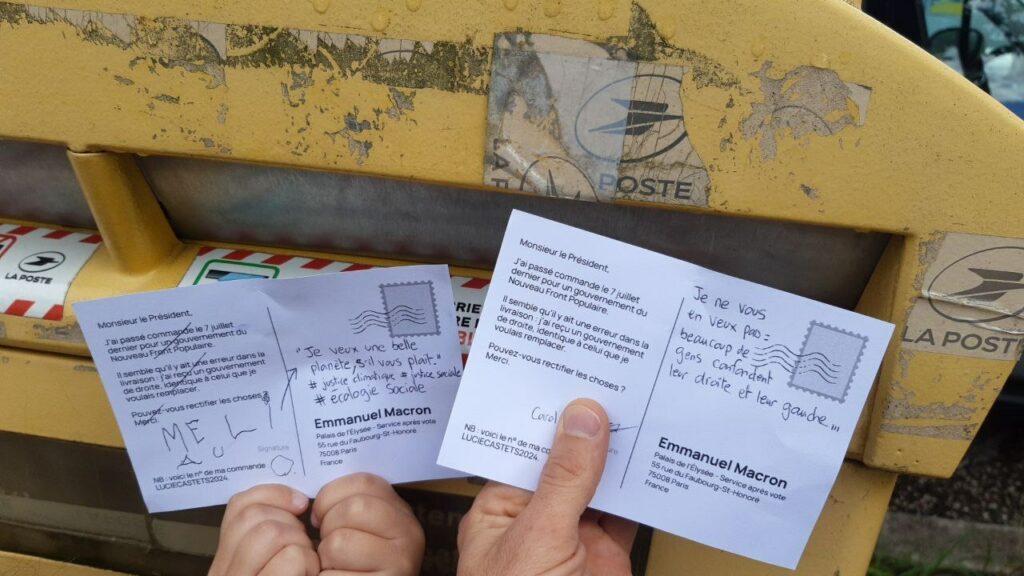 LA POSTE
LA P
POSTE
LA POSTE
Monsieur le Président,
J'ai passé commande le 7 juillet
dernier pour un gouvernement du
Nouveau Front Populaire.
Il semble qu'il y ait une erreur dans la
livraison : j'ai reçu un gouvernement
de droite, identique à celui que je
voulais remplacer.
Pouvez-vous rectifier les choses ?
Merci.
Signature
NB : voici le n° de ma commande
LUCIECASTETS2024.
"Je veux une belle
planète, s'il vous plaît."
# justice climatique # justice sociale
# écologie sociale
Emmanuel Macron
Palais de l'Élysée - Service après vote
55 rue du Faubourg-St-Honoré
75008 Paris
France
Monsieur le Président,
J'ai passé commande le 7 juillet
dernier pour un gouvernement du
Nouveau Front Populaire.
Il semble qu'il y ait une erreur dans la
livraison : j'ai reçu un gouvernement
de droite, identique à celui que je
voulais remplacer.
Pouvez-vous rectifier les choses ?
Merci.
NB : voici le n° de ma commande
LUCIECASTETS2024.
Je ne vous
en veux pas :
beaucoup de
gens confondent
leur droite et leur gauche...
Emmanuel Macron
Palais de l'Élysée - Service après vote
55 rue du Faubourg-St-Honoré
75008 Paris
France